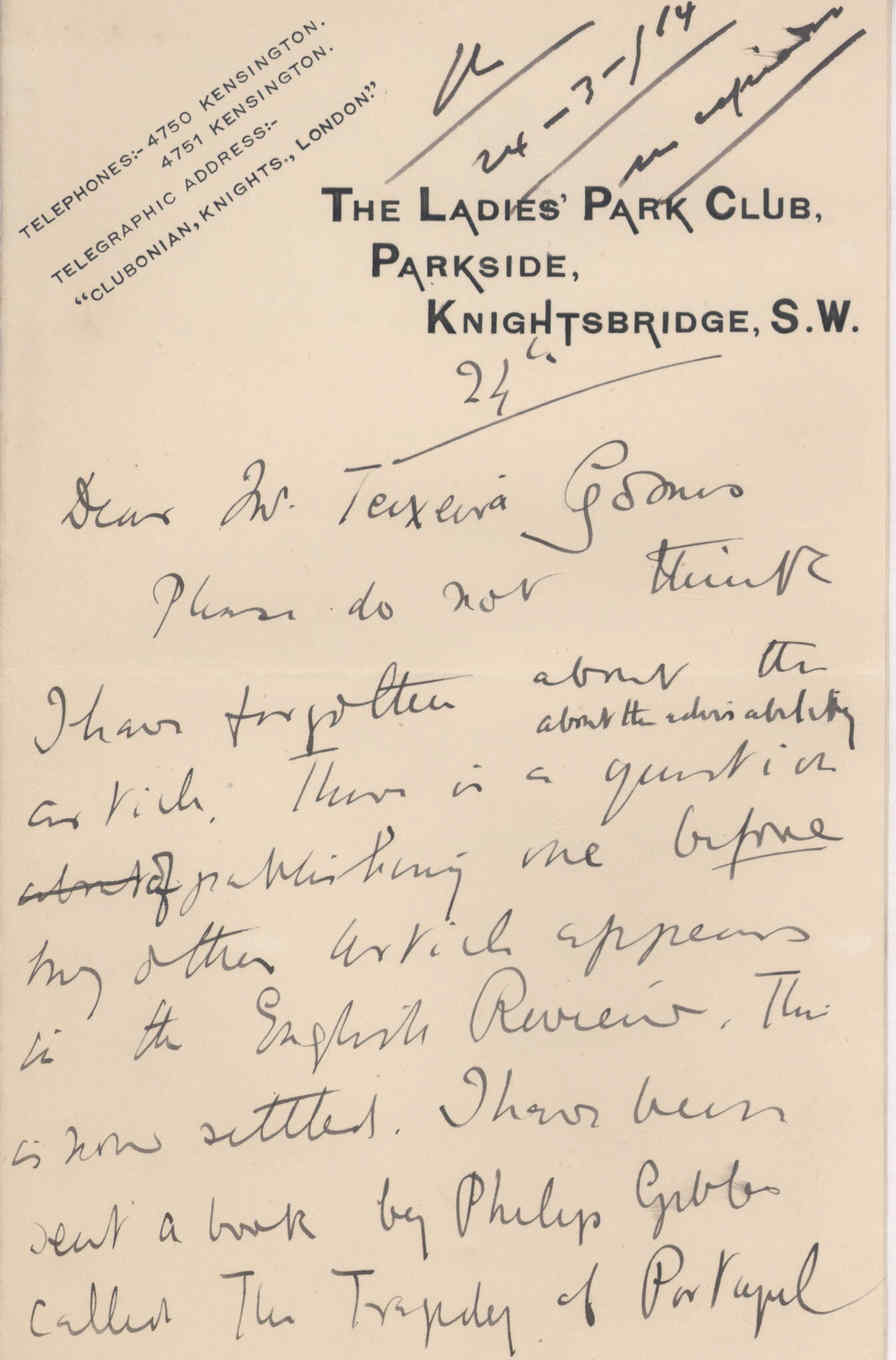 TELEPHONES:- 4750 KENSINGTON.
4751 KENSINGTON.
TELEGRAPHIC ADDRESS:-
"CLUBONIAN, KNIGHTS., LONDON."
24-3-914
THE LADIES' PARK CLUB,
PARKSIDE,
KNIGHTSBRIDGE, S.W.
24th
Dear Mr. Teixeira Gomes
Please do not think
I have forgotten about the
about the advisability
article. There is a question
about of publishing one before
my other article appears
in the English Review. This
is now settled. I have been
sent a book by Philip Gibbs
called The Tragedy of Portugal